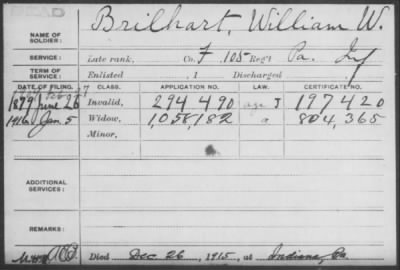 Brilhart, William W.
NAME OF
SOLDIER:
SERVICE:
Late rank, Co. F, 105 Reg't Pa. Inf
TERM OF
SERVICE:
Enlisted , 1 Discharged , 1
DATE OF FILING. CLASS. APPLICATION NO. LAW. CERTIFICATE NO.
1879 June 26 Invalid, 294490 197420
1916 Jan. 5 Widow, 1,058,182 804,365
Minor,
ADDITIONAL
SERVICES:
REMARKS:
Died Dec 26, 1915, at Indiana, Pa.